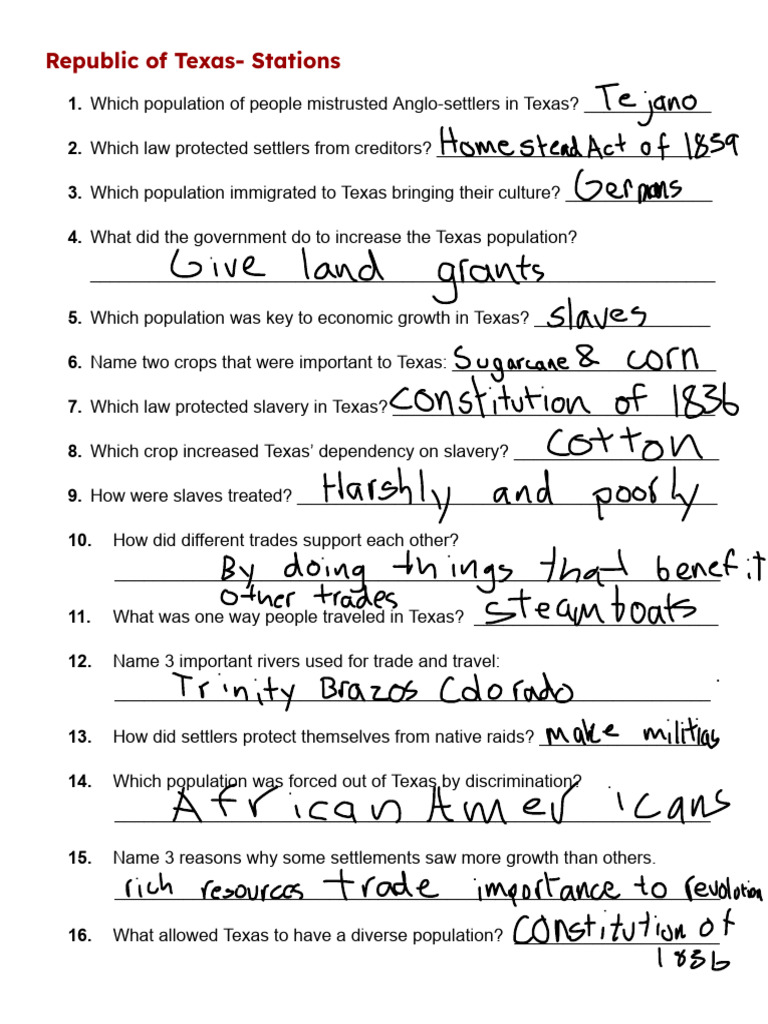 Republic of Texas- Stations
1. Which population of people mistrusted Anglo-settlers in Texas? Tejano
2. Which law protected settlers from creditors? Homestead Act of 1839
3. Which population immigrated to Texas bringing their culture? Germans
4. What did the government do to increase the Texas population?
Give land grants
5. Which population was key to economic growth in Texas? slaves
6. Name two crops that were important to Texas: Sugarcane & corn
7. Which law protected slavery in Texas? Constitution of 1836
8. Which crop increased Texas’ dependency on slavery? Cotton
9. How were slaves treated? Harshly and poorly
10. How did different trades support each other?
By doing things that benefit
other trades
11. What was one way people traveled in Texas? steamboats
12. Name 3 important rivers used for trade and travel:
Trinity Brazos Colorado
13. How did settlers protect themselves from native raids? make militias
14. Which population was forced out of Texas by discrimination?
African Americans
15. Name 3 reasons why some settlements saw more growth than others.
rich resources trade importance to revolution
16. What allowed Texas to have a diverse population? Constitution of
1836